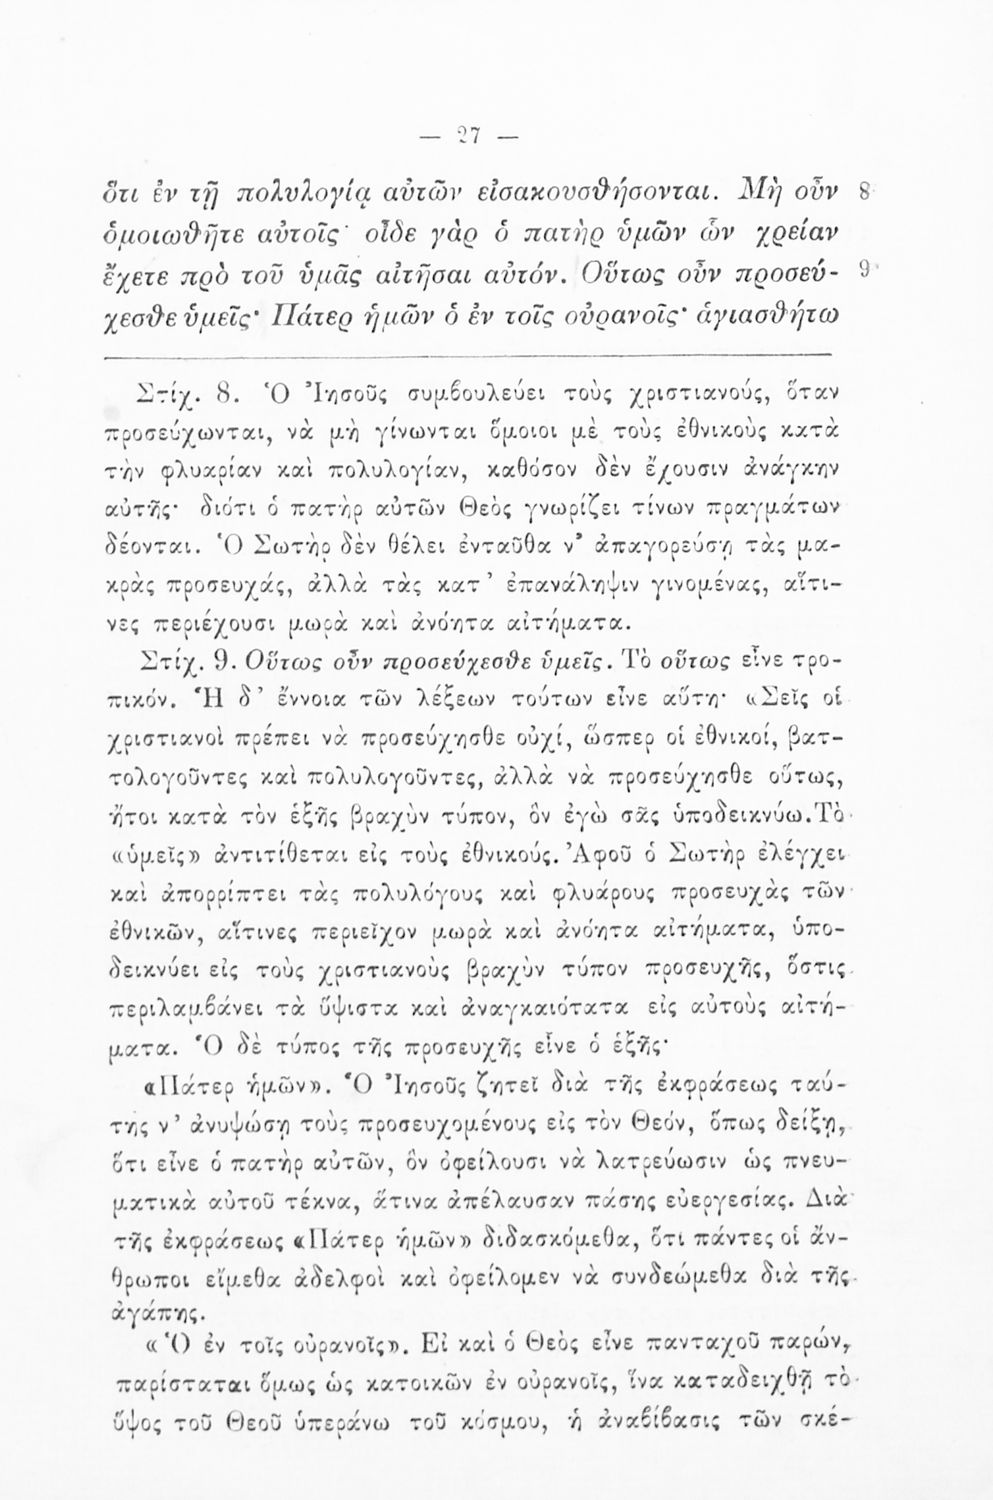 — 27 —
ὅτι ἐν τῇ πολυλογίᾳ αὐτῶν εἰσακουσθήσονται. Μὴ οὖν 8
ὁμοιωθῆτε αὐτοῖς· οἶδε γὰρ ὁ πατὴρ ὑμῶν ὧν χρείαν
ἔχετε πρὸ τοῦ ὑμᾶς αἰτῆσαι αὐτόν. Οὕτως οὖν προσεύ- 9
χεσθε ὑμεῖς· Πάτερ ἡμῶν ὁ ἐν τοῖς οὐρανοῖς· ἁγιασθήτω
Στίχ. 8. Ὁ Ἰησοῦς συμβουλεύει τοὺς χριστιανούς, ὅταν
προσεύχωνται, νὰ μὴ γίνωνται ὅμοιοι μὲ τοὺς ἐθνικοὺς κατὰ
τὴν φλυαρίαν καὶ πολυλογίαν, καθόσον δὲν ἔχουσιν ἀνάγκην
αὐτῆς· διότι ὁ πατὴρ αὐτῶν Θεὸς γνωρίζει τίνων πραγμάτων
δέονται. Ὁ Σωτὴρ δὲν θέλει ἐνταῦθα ν' ἀπαγορεύσῃ τὰς μα-
κρὰς προσευχάς, ἀλλὰ τὰς κατ' ἐπανάληψιν γινομένας, αἵτι-
νες περιέχουσι μωρὰ καὶ ἀνόητα αἰτήματα.
Στίχ. 9. Οὕτως οὖν προσεύχεσθε ὑμεῖς. Τὸ οὕτως εἶνε τρο-
πικόν. Ἡ δ' ἔννοια τῶν λέξεων τούτων εἶνε αὕτη· «Σεῖς οἱ
χριστιανοὶ πρέπει νὰ προσεύχησθε οὐχί, ὥσπερ οἱ ἐθνικοί, βατ-
τολογοῦντες καὶ πολυλογοῦντες, ἀλλὰ νὰ προσεύχησθε οὕτως,
ἤτοι κατὰ τὸν ἑξῆς βραχὺν τύπον, ὃν ἐγὼ σᾶς ὑποδεικνύω. Τὸ
«ὑμεῖς» ἀντιτίθεται εἰς τοὺς ἐθνικούς. Ἀφοῦ ὁ Σωτὴρ ἐλέγχει
καὶ ἀπορρίπτει τὰς πολυλόγους καὶ φλυάρους προσευχὰς τῶν
ἐθνικῶν, αἵτινες περιεῖχον μωρὰ καὶ ἀνόητα αἰτήματα, ὑπο-
δεικνύει εἰς τοὺς χριστιανοὺς βραχὺν τύπον προσευχῆς, ὅστις
περιλαμβάνει τὰ ὕψιστα καὶ ἀναγκαιότατα εἰς αὐτοὺς αἰτή-
ματα. Ὁ δὲ τύπος τῆς προσευχῆς εἶνε ὁ ἑξῆς·
«Πάτερ ἡμῶν». Ὁ Ἰησοῦς ζητεῖ διὰ τῆς ἐκφράσεως ταύ-
της ν' ἀνυψώσῃ τοὺς προσευχομένους εἰς τὸν Θεόν, ὅπως δείξῃ,
ὅτι εἶνε ὁ πατὴρ αὐτῶν, ὃν ὀφείλουσι νὰ λατρεύωσιν ὡς πνευ-
ματικὰ αὐτοῦ τέκνα, ἅτινα ἀπέλαυσαν πάσης εὐεργεσίας. Διὰ
τῆς ἐκφράσεως «Πάτερ ἡμῶν» διδασκόμεθα, ὅτι πάντες οἱ ἄν-
θρωποι εἴμεθα ἀδελφοὶ καὶ ὀφείλομεν νὰ συνδεώμεθα διὰ τῆς
ἀγάπης.
«Ὁ ἐν τοῖς οὐρανοῖς». Εἰ καὶ ὁ Θεὸς εἶνε πανταχοῦ παρών,
παρίσταται ὅμως ὡς κατοικῶν ἐν οὐρανοῖς, ἵνα καταδειχθῇ τὸ
ὕψος τοῦ Θεοῦ ὑπεράνω τοῦ κόσμου, ἡ ἀναβίβασις τῶν σκέ-